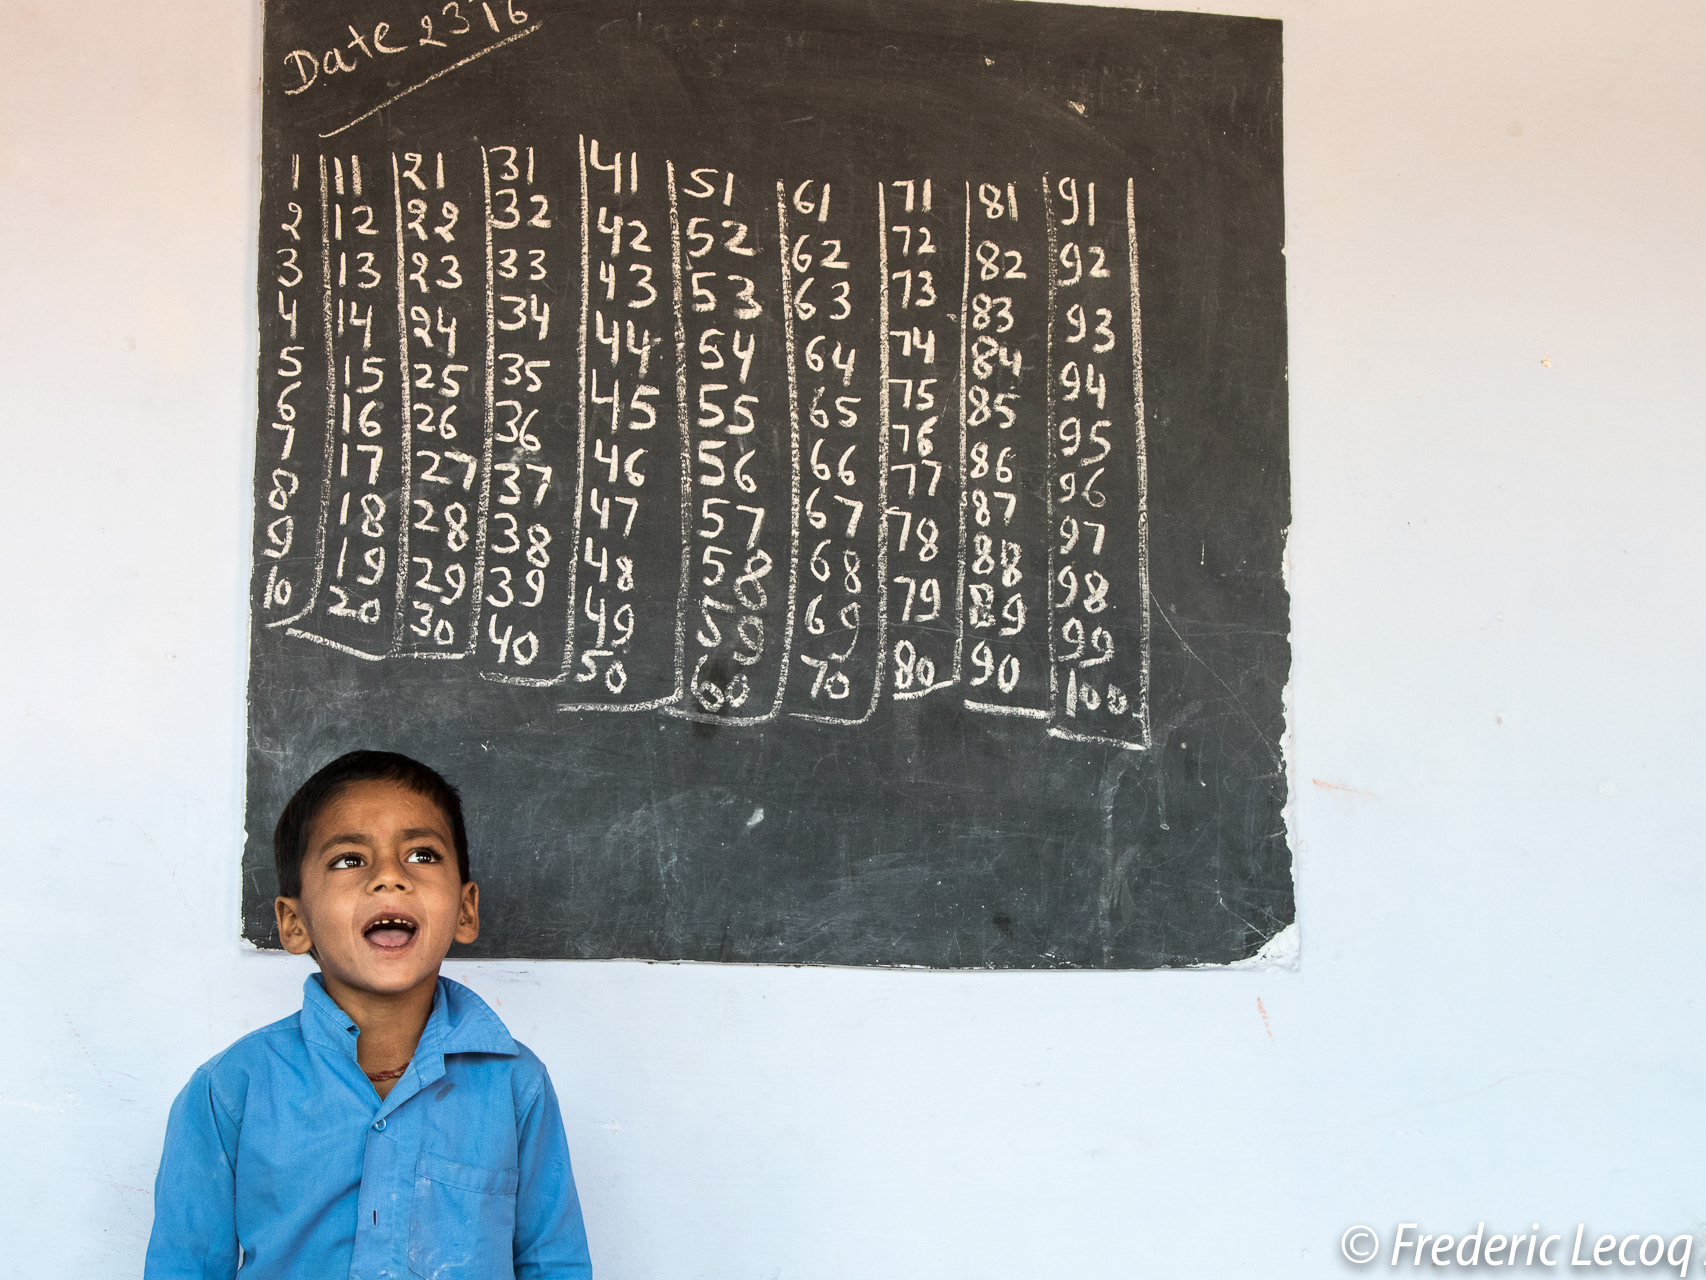 Date 23 16
1 11 21 31 41 51 61 71 81 91
2 12 22 32 42 52 62 72 82 92
3 13 23 33 43 53 63 73 83 93
4 14 24 34 44 54 64 74 84 94
5 15 25 35 45 55 65 75 85 95
6 16 26 36 46 56 66 76 86 96
7 17 27 37 47 57 67 77 87 97
8 18 28 38 48 58 68 78 88 98
9 19 29 39 49 59 69 79 89 99
10 20 30 40 50 60 70 80 90 100
© Frederic Lecoq